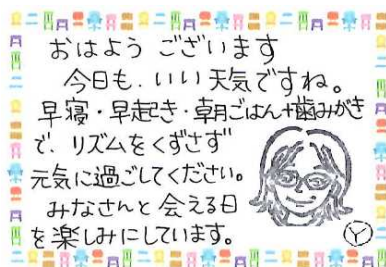 おはよう ございます
今日も、いい天気ですね。
早寝・早起き・朝ごはん+歯みがき
で、リズムをくずさず
元気に過ごしてください。
みなさんと会える日
を楽しみにしています。
Y